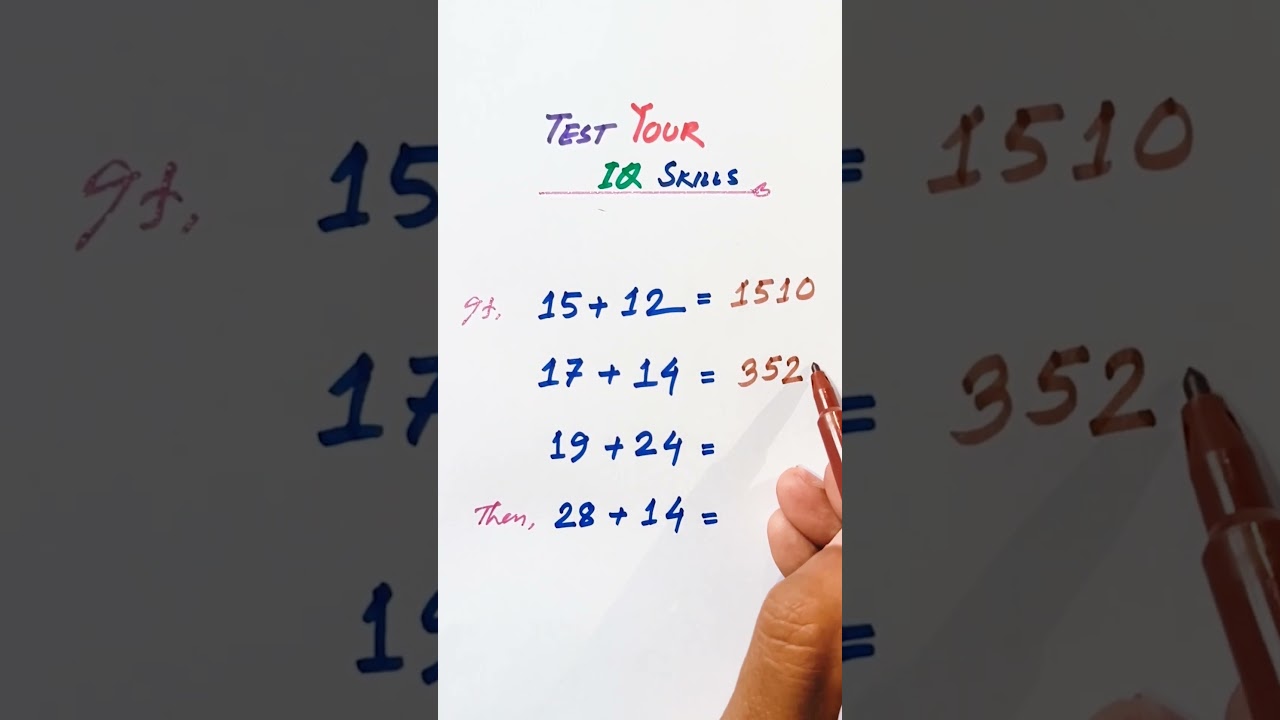 TEST YOUR
IQ SKILLS
If, 15 + 12 = 1510
17 + 14 = 352
19 + 24 =
Then, 28 + 14 =